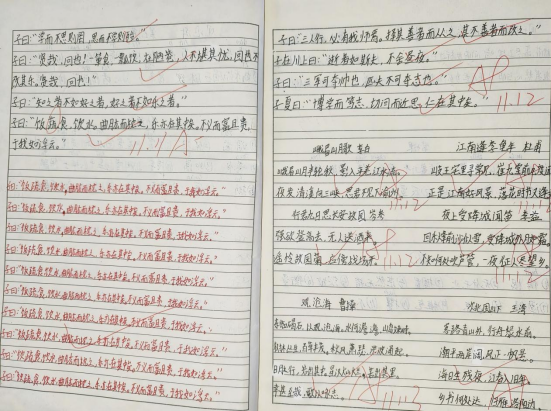 子曰:"学而不思则罔,思而不学则殆。"
子曰:"贤哉,回也!一箪食,一瓢饮,在陋巷,人不堪其忧,回也不
改其乐。贤哉,回也!"
子曰:"知之者不如好之者,好之者不如乐之者。"
子曰:"饭疏食,饮水,曲肱而枕之,乐亦在其中矣。不义而富且贵,
于我如浮云。"
11.11 A
子曰:"饭疏食,饮水,曲肱而枕之,乐亦在其中矣。不义而富且贵,于我如浮云。"
子曰:"饭疏食,饮水,曲肱而枕之,乐亦在其中矣。不义而富且贵,于我如浮云。"
子曰:"饭疏食,饮水,曲肱而枕之,乐亦在其中矣。不义而富且贵,于我如浮云。"
子曰:"饭疏食,饮水,曲肱而枕之,乐亦在其中矣。不义而富且贵,于我如浮云。"
子曰:"饭疏食,饮水,曲肱而枕之,乐亦在其中矣。不义而富且贵,于我如浮云。"
子曰:"饭疏食,饮水,曲肱而枕之,乐亦在其中矣。不义而富且贵,于我如浮云。"
子曰:"饭疏食,饮水,曲肱而枕之,乐亦在其中矣。不义而富且贵,于我如浮云。"
子曰:"饭疏食,饮水,曲肱而枕之,乐亦在其中矣。不义而富且贵,于我如浮云。"
子曰:"饭疏食,饮水,曲肱而枕之,乐亦在其中矣。不义而富且贵,于我如浮云。"
子曰:"饭疏食,饮水,曲肱而枕之,乐亦在其中矣。不义而富且贵,于我如浮云。"
子曰:"三人行,必有我师焉。择其善者而从之,其不善者而改之。"
子在川上曰:"逝者如斯夫,不舍昼夜。"
子曰:"三军可夺帅也,匹夫不可夺志也。"
子夏曰:"博学而笃志,切问而近思,仁在其中矣。"
11.12
峨眉山月歌 李白 江南逢李龟年 杜甫
峨眉山月半轮秋,影入平羌江水流。 岐王宅里寻常见,崔九堂前
夜发清溪向三峡,思君不见下渝州。 正是江南好风景,落花时节又逢君
行军九日思长安故园 岑参 夜上受降城闻笛 李益
强欲登高去,无人送酒来 回乐烽前沙似雪,受降城外月如霜。
遥怜故园菊,应傍战场开 不知何处吹芦管,一夜征人尽望乡。
11.12
观沧海 曹操 次北固山下 王湾
东临碣石,以观沧海。水何澹澹,山岛竦峙。 客路青山外,行舟绿水前。
树木丛生,百草丰茂。秋风萧瑟,洪波涌起。 潮平两岸阔,风正一帆悬。
日月之行,若出其中;星汉灿烂,若出其里。 海日生残夜,江春入旧年。
幸甚至哉,歌以咏志。 乡书何处达,归雁洛阳边